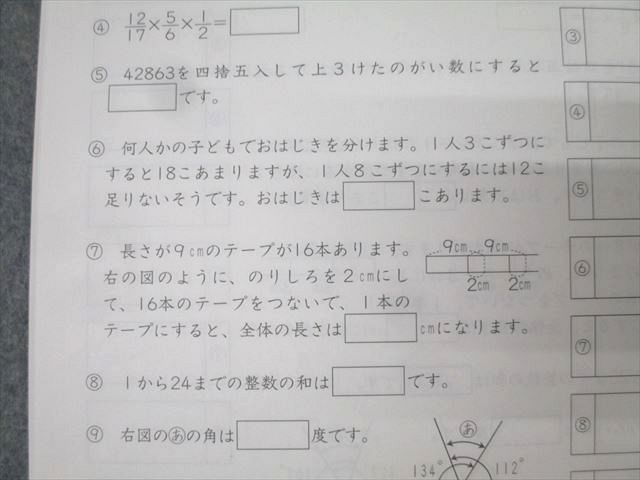 ④ 12/17×5/6×1/2=
⑤ 42863を四捨五入して上3けたのがい数にすると
です。
⑥ 何人かの子どもでおはじきを分けます。1人3こずつに
すると18こあまりますが、1人8こずつにするには12こ
足りないそうです。おはじきは こあります。
⑦ 長さが9cmのテープが16本あります。
右の図のように、のりしろを2cmにし
て、16本のテープをつないで、1本の
テープにすると、全体の長さは cmになります。
9cm 9cm
2cm 2cm
⑧ 1から24までの整数の和は です。
⑨ 右図のあの角は 度です。
あ
134° 112°
③
④
⑤
⑥
⑦
⑧